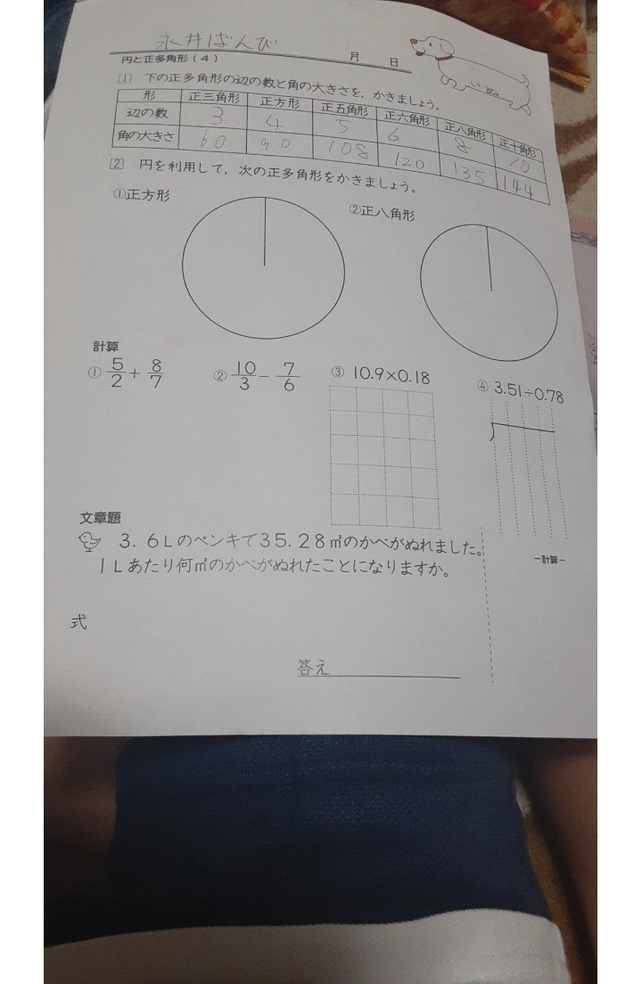 永井ばんび
月 日
円と正多角形(4)
[1] 下の正多角形の辺の数と角の大きさを，かきましょう。
形 正三角形 正方形 正五角形 正六角形 正八角形 正十角形
辺の数 3 4 5 6 8 10
角の大きさ 60 90 108 120 135 144
[2] 円を利用して，次の正多角形をかきましょう。
①正方形 ②正八角形
計算
① 5/2 + 8/7 ② 10/3 − 7/6 ③ 10.9×0.18 ④ 3.51÷0.78
文章題
3.6Lのペンキで35.28㎡のかべがぬれました。
1Lあたり何㎡のかべがぬれたことになりますか。
−計算−
式
答え